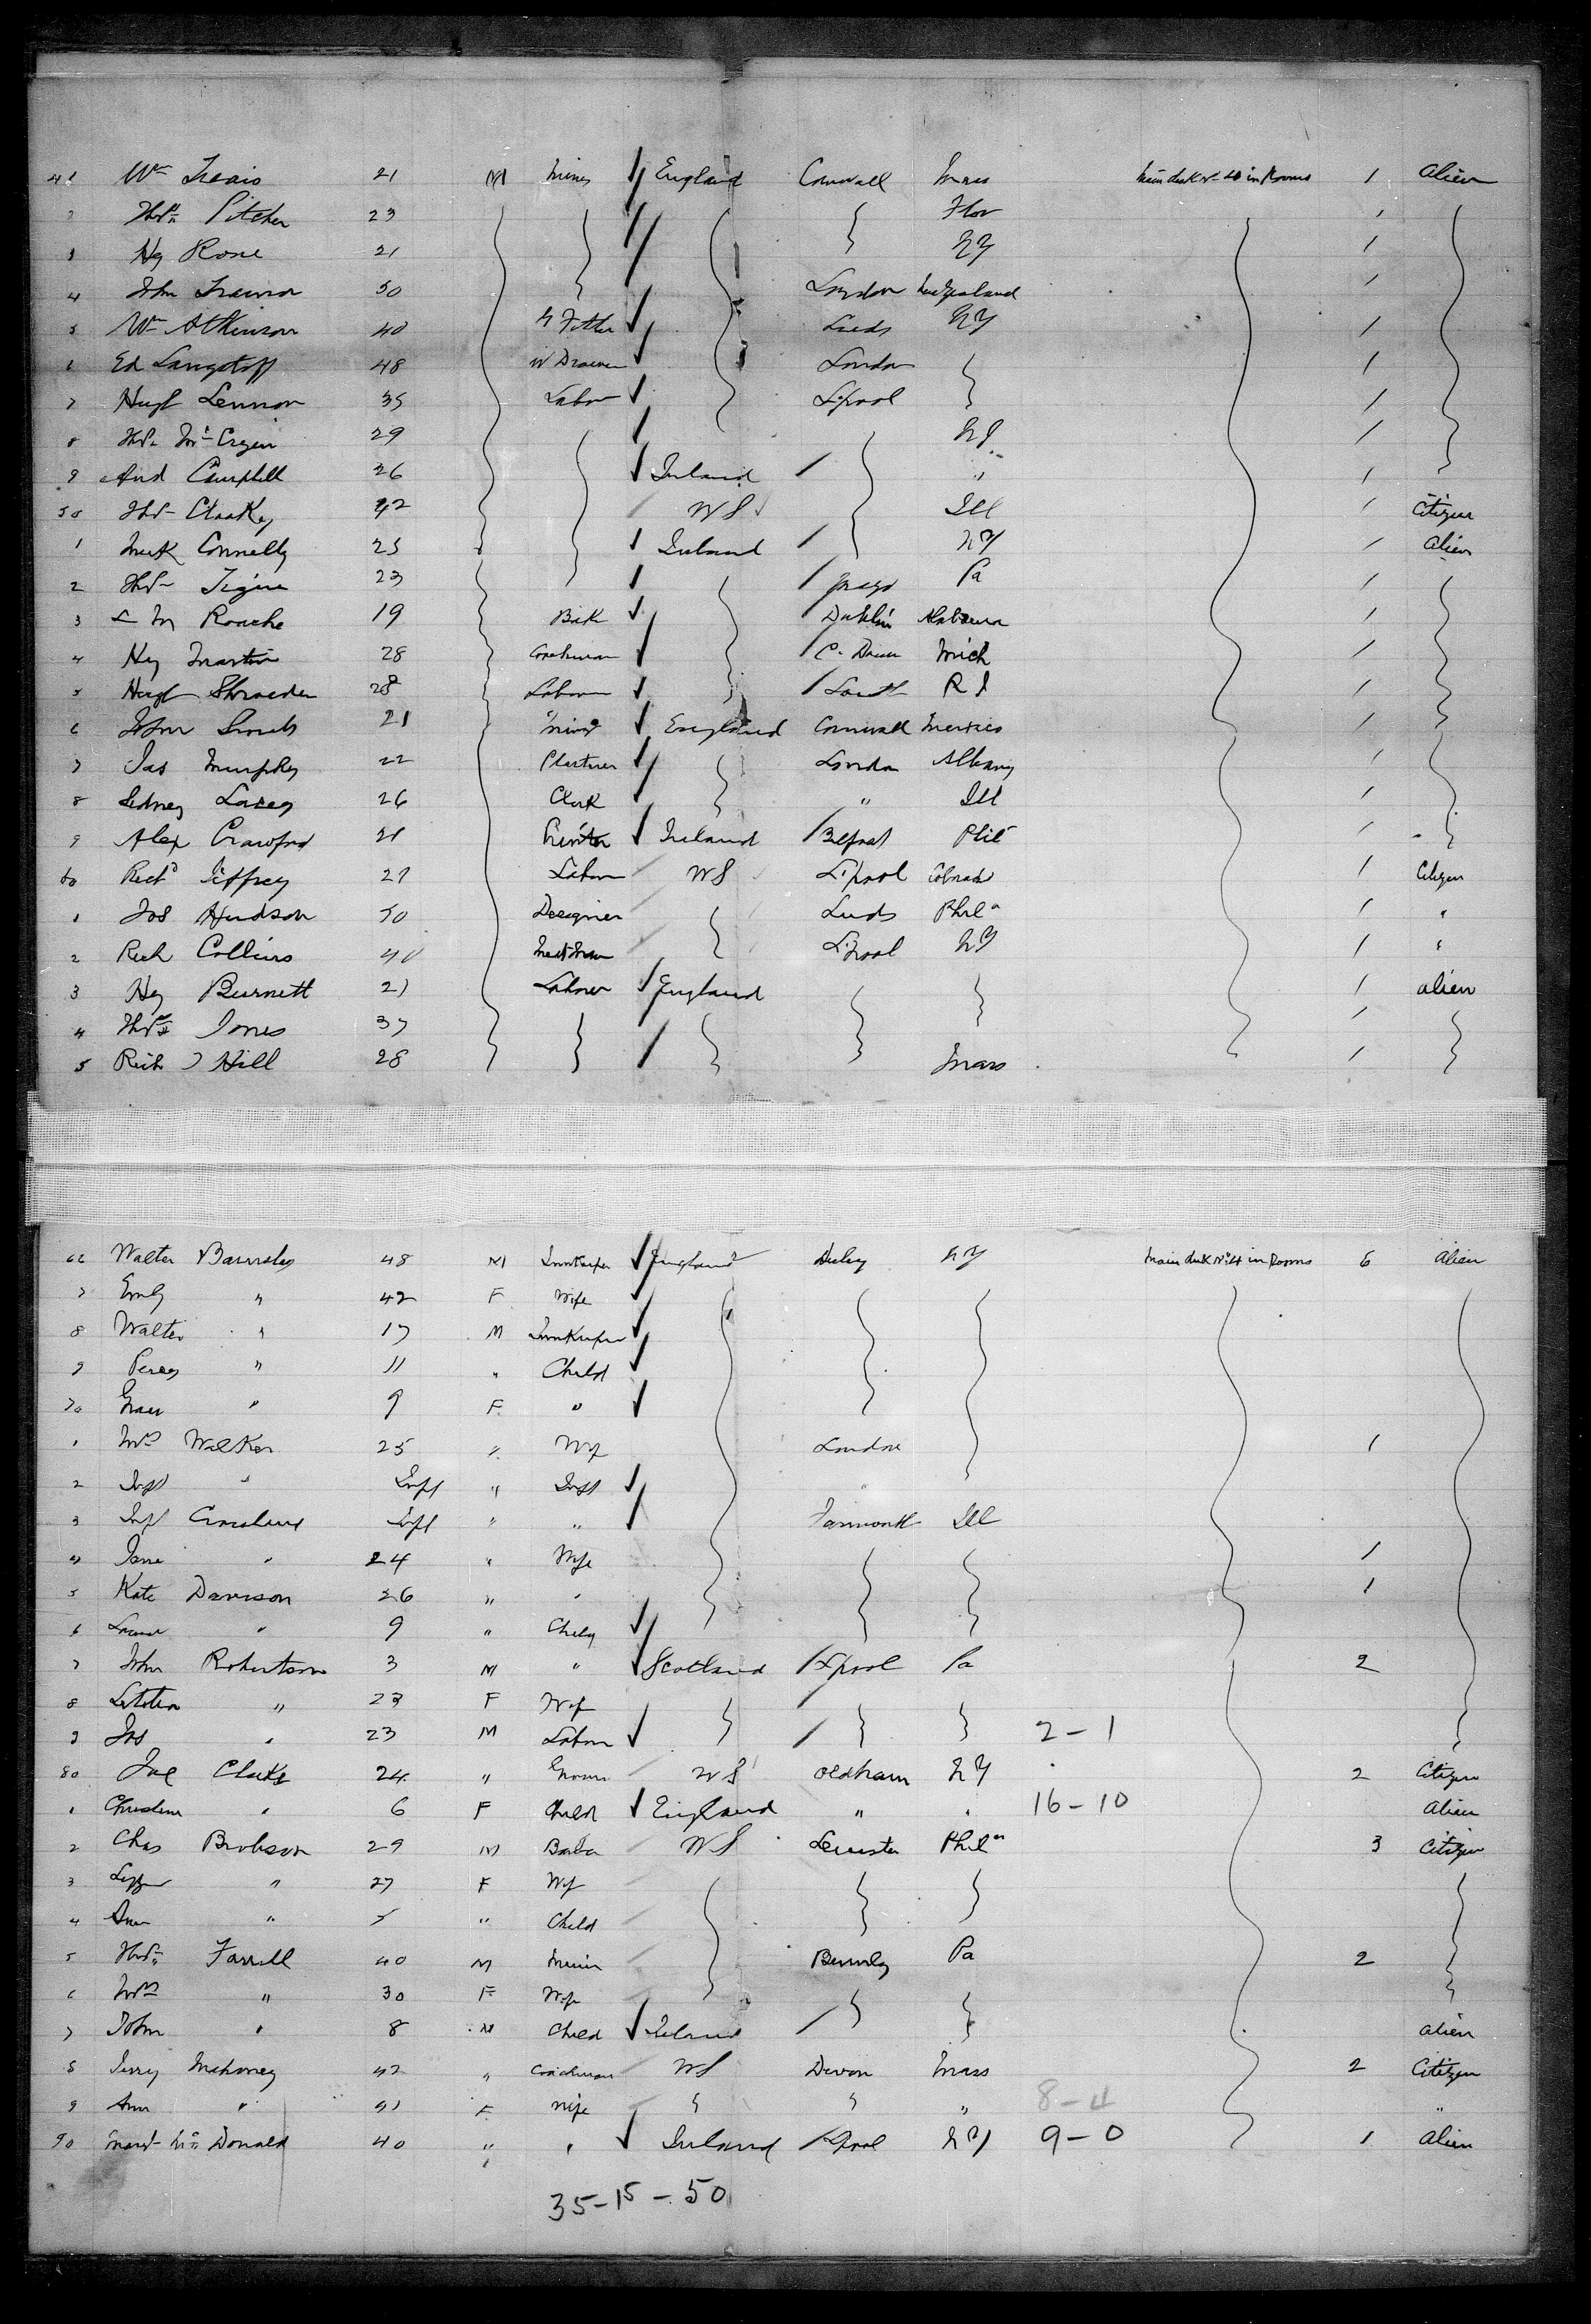 41 Wm 21 M Miner England Cornwall Mass Main deck No 4 in Rooms 1 Alien
2 Thos Pitcher 23 Flor 1
3 Hy Rose 21 NY 1
4 John 50 London New Zealand 1
5 Wm Atkinson 40 Fitter Leeds NY 1
6 Ed Langstaff 48 W Drawer London 1
7 Hugh Lennon 35 Labor L'pool 1
8 Thos 29 1
9 And Campbell 26 Ireland " 1
50 Thos 42 WS Ill 1 Citizen
1 Connelly 25 Ireland NY 1 Alien
2 Thos 23 Pa 1
3 Roache 19 Dublin Alabama 1
4 Hy Martin 28 Coachman C. Down Mich 1
5 Hugh 28 Laborer Louth R I 1
6 John 21 Miner England Cornwall Mexico 1
7 Jas Murphy 22 London Albany 1
8 Sidney Lacey 26 Clerk " Ill 1
9 Alex Crawford 21 Printer Ireland Belfast Phil 1
60 Richd Jeffrey 27 Labor WS L'pool Colorado 1 Citizen
1 Jos Hudson 50 Designer Leeds Phila 1 "
2 Rich Collins 40 L'pool NY 1 "
3 Hy Burnett 21 Laborer England 1 alien
4 Thos Jones 37 1
5 Rich J Hill 28 Mass 1
66 Walter Barnsley 48 M Innkeeper England Derby NY Main deck No 4 in Rooms 6 Alien
7 Emly " 42 F Wife
8 Walter " 17 M Innkeeper
9 Percy " 11 " Child
70 Grace " 9 F "
1 Mrs Walker 25 " Wife London 1
2 Inft " Inft " Inft
3 Inft Inft " " Ill
4 Jane " 24 " Wife 1
5 Kate Davison 26 " " 1
6 " 9 " Child
7 John Robertson 3 M " Scotland L'pool Pa 2
8 " 23 F Wife
9 Jos " 23 M Labor 2-1
80 24 " WS Oldham NY 2 Citizen
1 " 6 F Child England " " 16-10 Alien
2 Chas Brobson 29 M WS Leicester Phila 3 Citizen
3 " 27 F Wife
4 Ann " " Child
5 Thos Farrell 40 M Miner Pa 2
6 Mrs " 30 F Wife
7 John " 8 M Child Ireland alien
8 Jerry Mahoney 42 " Coachman WS Devon Mass 2 Citizen
9 Ann " 41 F Wife " 8-4 "
90 Donald 40 " " Ireland L'pool NY 9-0 1 Alien
35-15-50